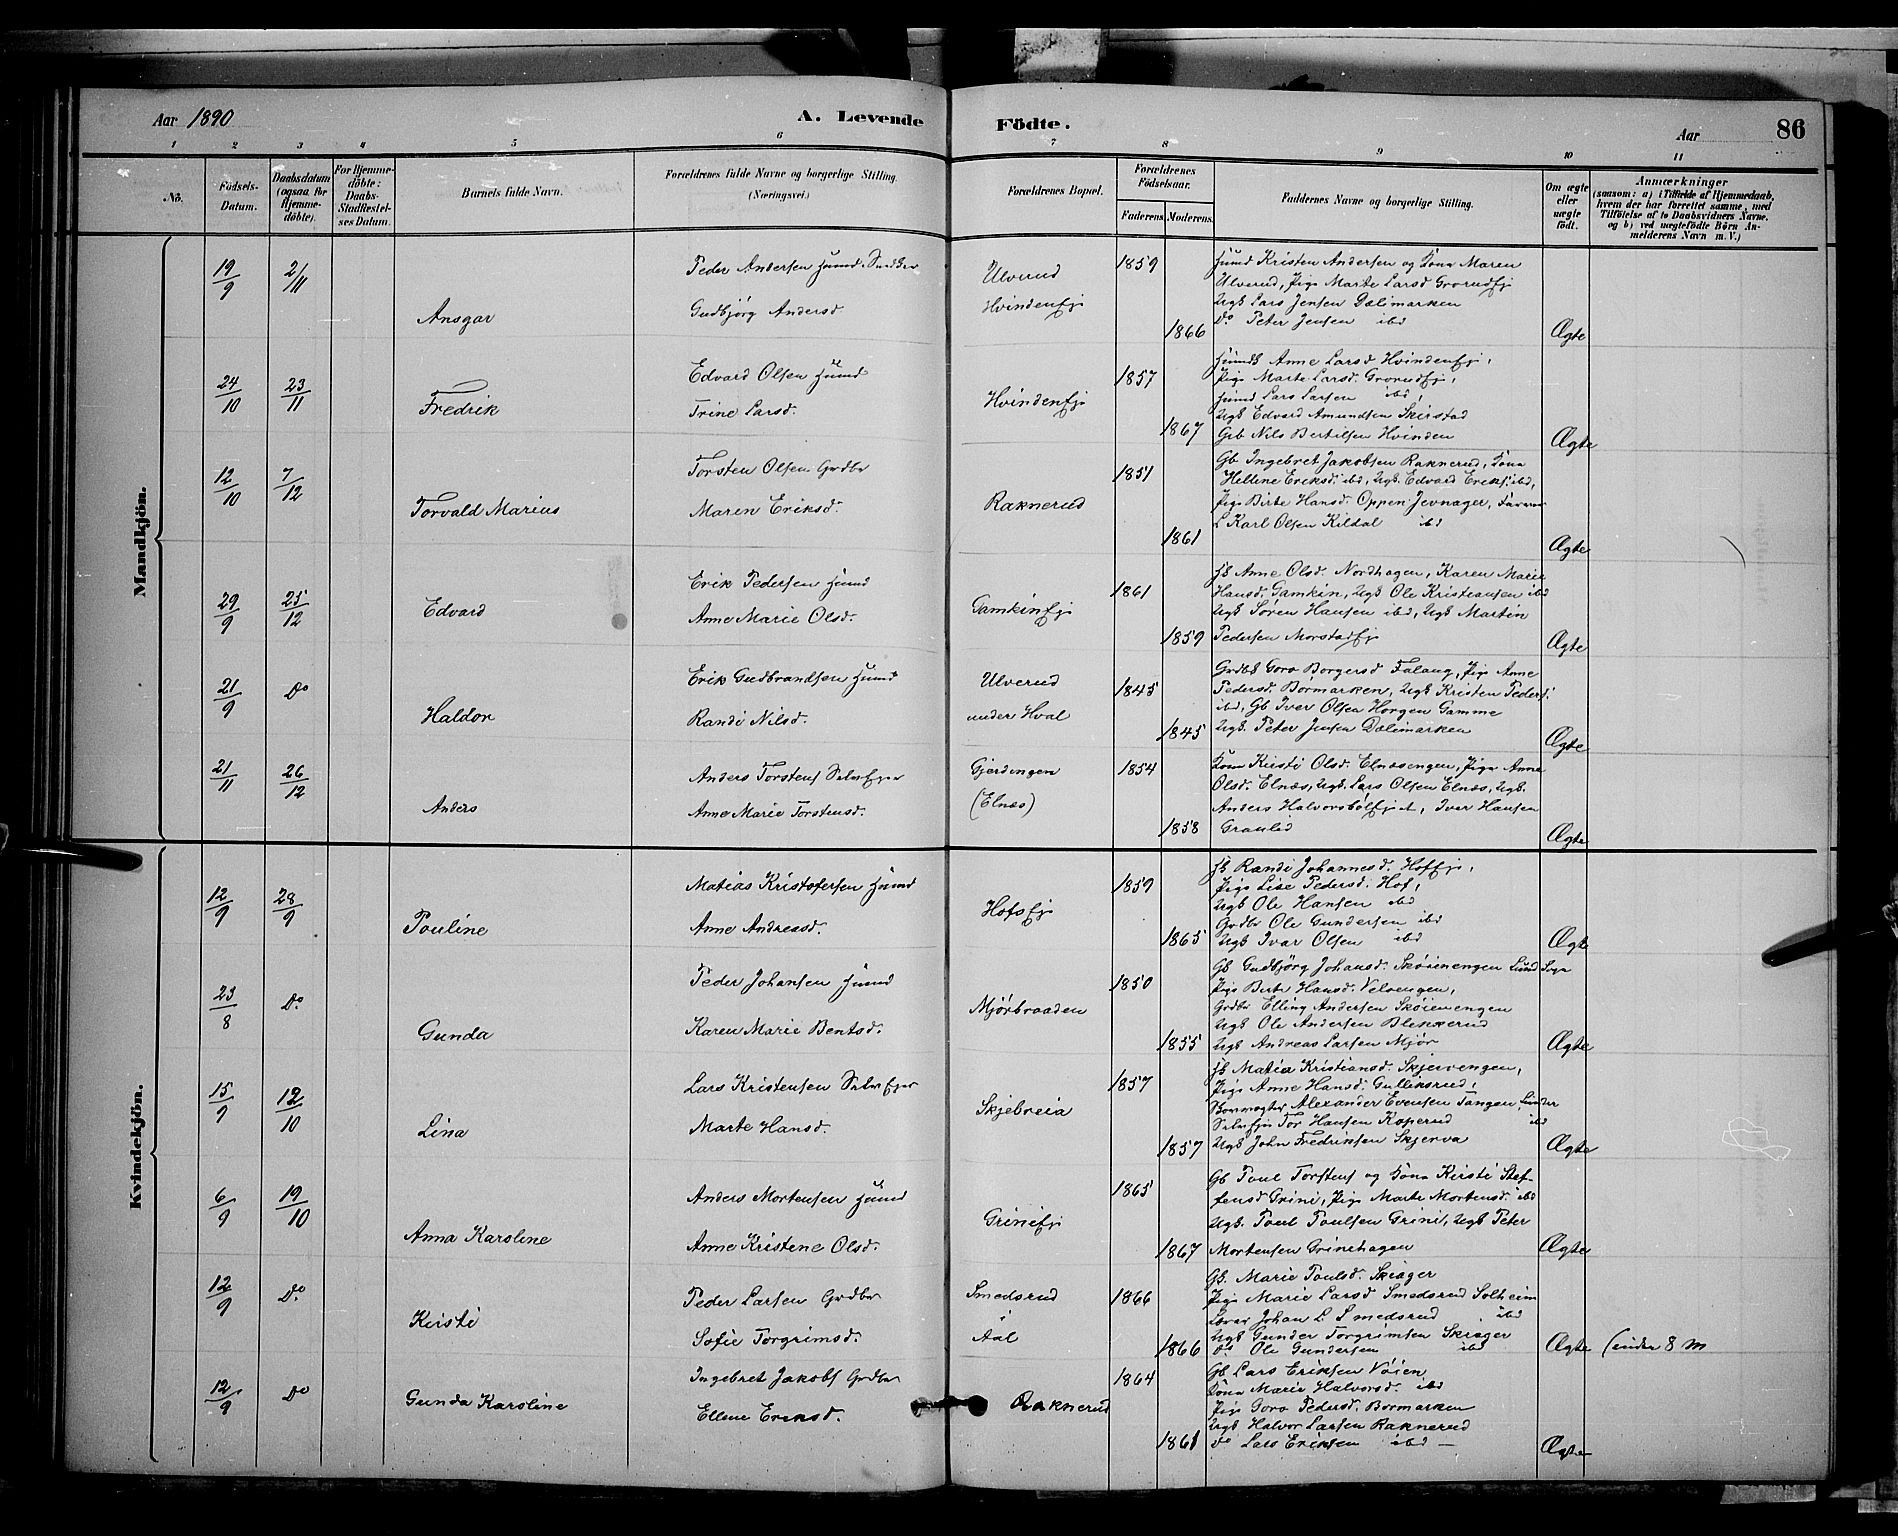 Aar 1890
A. Levende
Födte.
Aar
86
1 2 3 4 5 6 7 8 9 10 11
No.
Födsels-Datum.
Daabsdatum (ogsaa for Hjemme-döbte).
For Hjemme-döbte: Daabs-Stadfæstel-ses Datum.
Barnets fulde Navn.
Forældrenes fulde Navne og borgerlige Stilling. (Næringsvei.)
Forældrenes Bopæl.
Forældrenes Födselsaar.
Faderens Moderens
Faddernes Navne og borgerlige Stilling.
Om ægte eller uægte födt.
Anmærkninger
(saasom: a) i Tilfælde af Hjemmedaab,
hvem der har forrettet samme, med
Tilföielse af to Daabsvidners Navne.
og b) ved uægtefödte Börn An-
melderens Navn m. V.)
Mandkjön.
19/9 2/11 Ansgar
Peder Andersen Huusm Snedker
Gudbjørg Andersd.
Ulverud
Hvindenejr
1859
1866
Huusm Kristen Andersen og Kona Maren
Ulverud, Pige Marte Larsd Grorudejr
Ugk Lars Jensen Dælimarken
Do Peter Jensen ibd
Ægte
24/10 23/11 Fredrik
Edvard Olsen Huusm
Trine Larsd.
Hvindenejr
1857
1867
Anne Larsd Hvindenejr,
Pige Marte Larsd. Grorudejr,
Huusm Lars Larsen ibd,
Ugk Edvard Amundsen Skirstad
Grb Nils Bertilsen Hvinden
Ægte
12/10 7/12 Torvald Marius
Torsten Olsen Grdbr
Maren Eriksd.
Raknerud
1851
1861
Gb Ingebret Jakobsen Raknerud, Kona
Hellene Eriksd. ibd, Ugk. Edvard Eriks. ibd,
Pige Birte Hansd. Oppen Jevnager,
L Karl Olsen Kildal ibd
Ægte
29/9 25/12 Edvard
Erik Pedersen Huusm
Anne Marie Olsd.
Gamkinejr
1861
1859
Anne Olsd. Nordhagen, Karen Marie
Hansd. Gamkin, Ugk Ole Kristiansen ibd
Ugk Søren Hansen ibd, Ugk Martin
Pedersen Morstadejr
Ægte
21/9 Do Haldor
Erik Gudbrandsen Huusm
Randi Nilsd.
Ulverud
under Hval
1845
1845
Goro Borgersd Falang, Pige Anne
Pedersd. Børmarken, Ugk Kristen Peders.
ibd, Gb Iver Olsen Horgen Gamme
Ugk. Peter Jensen Dælimarken
Ægte
21/11 26/12 Anders
Anders Torstens Selvejer
Anne Marie Torstensd.
Gjerdingen
(Elnæs)
1854
1858
Kona Kristi Olsd. Elnæsengen, Pige Anne
Olsd. Elnæs, Ugk. Lars Olsen Elnæs, Ugk.
Anders Halvorsbølejet, Iver Hansen
Granlid
Ægte
Kvindekjön.
12/9 28/9 Pouline
Matias Kristofersen Huusm
Anne Andreasd.
Hofsejr
1859
1865
Randi Johannesd. Hofejr,
Pige Lise Pedersd. Hof,
Ugk Ole Hansen ibd
Grdbr Ole Gundersen ibd
Ugk Ivar Olsen ibd
Ægte
23/8 Do. Gunda
Peder Johansen Huusm
Karen Marie Bentsd.
Mjørbraaden
1850
1855
Gk Gudbjørg Johansd. Skøienengen Lund Sogn
Pige Berte Hansd. Velsengen,
Grdbr Elling Andersen Skøienengen
Ugk Ole Andersen Blekkerud
Ugk Andreas Larsen Mjør
Ægte
15/9 12/10 Lina
Lars Kristensen Selvejer
Marte Hansd.
Skjebreia
1857
1857
Matia Kristiansd. Skjervengen,
Pige Anne Hansd. Gulliksrud,
Alexander Evensen Tangen, Lunder
Selvejer Tor Hansen Koperud ibd
Ugk John Fredriksen Skjerva
Ægte
6/9 19/10 Anna Karoline
Anders Mortensen Huusm
Anne Kristene Olsd.
Griniejr
1865
1867
Gb Poul Torstens og Kona Kirsti Stef-
fensd Grini, Pige Marte Mortensd. ibd
Ugk. Poul Poulsen Grini, Ugk Peter
Mortensen Grinihagen
Ægte
12/9 Do Kirsti
Peder Larsen Grdbr
Sofie Torgrimsd.
Smedsrud
Aal
1866
1866
Gk. Marie Poulsd. Skiager
Pige Marie Larsd Smedsrud Solheim
Lærer Johan L Smedsrud ibd
Ugk Gunder Torgrimsen Skiager
Do Ole Gundersen ibd
Ægte
(under 8 M
12/9 Do Gunda Karoline
Ingebret Jakobs Grdbr
Ellene Eriksd.
Raknerud
1864
1861
Gb Lars Eriksen Vøien
Kona Marie Halvorsd. ibd
Pige Goro Pedersd. Børmarken
Ugk Halvor Larsen Raknerud
Do Lars Eriksen ibd —
Ægte